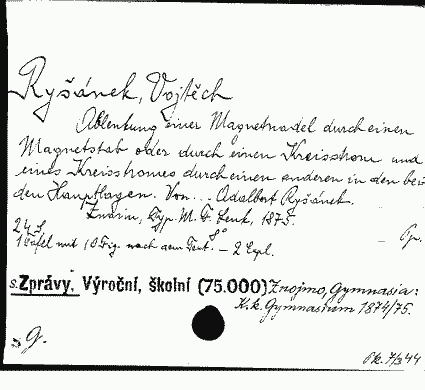 Ryšánek, Vojtěch
Ablenkung einer Magnetnadel durch einen
Magnetstab oder durch einen Kreisstrom und
eines Kreisstromes durch einen anderen in den bei-
den Hauptlagen. Von... Adalbert Ryšánek.
Znaim, Typ. M. F. Lenk, 1875.
24 S. 8°
1 Tafel mit 10 Fig. nach dem Text. – 2 Expl. –
s. Zprávy. Výroční, školní (75.000) Znojmo, Gymnasia:
K.k. Gymnasium 1874/75.
G.
7/3 44